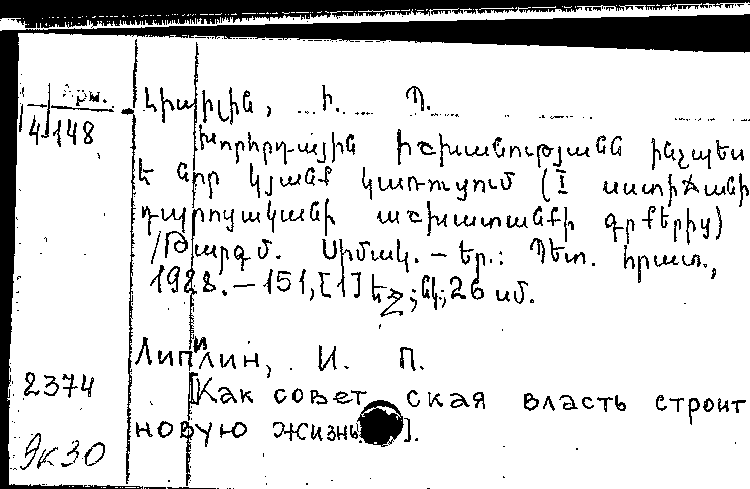 Арм.
4148
Լիպիլին, Ի. Պ.
Խորհրդային իշխանությանն ինչպես
է նոր կյանք կառուցում (I աստիճանի
դպրոցական աշխատանքի գրքերից)
/Թարգմ. Սիմակ. – Եր.: Պետ. հրատ.,
1928. – 151,[1] էջ; նկ; 26 սմ.
Липилин, И. П.
2374
[Как совет ская власть строит
новую жизнь].
9к30